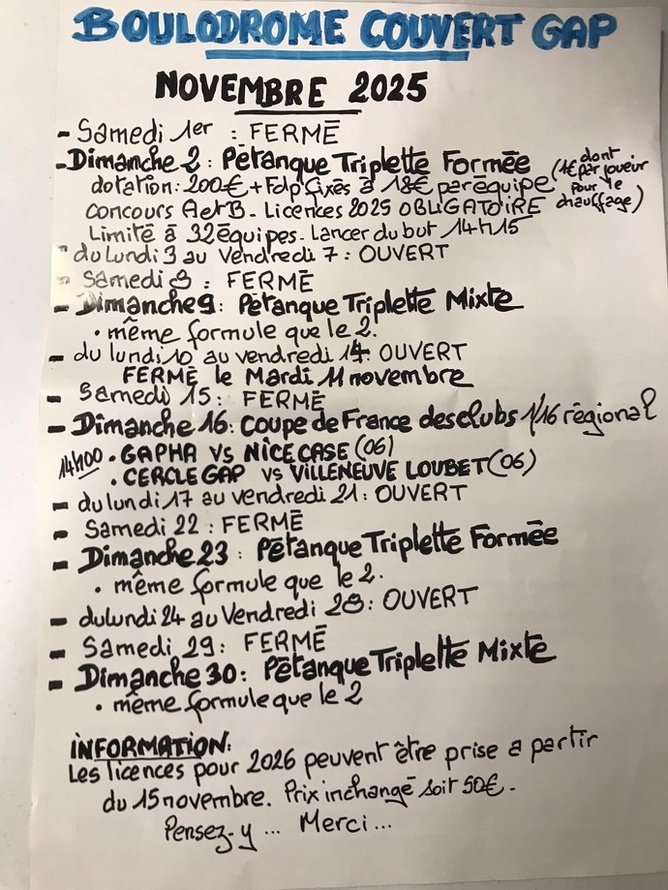 BOULODROME COUVERT GAP
NOVEMBRE 2025
- Samedi 1er : FERMÉ
- Dimanche 2 : Pétanque Triplette Formée (dont 1€ par joueur pour le chauffage)
dotation : 200€ + Fdp fixés à 18€ par équipe
Concours A et B - Licences 2025 OBLIGATOIRE
Limité à 32 équipes. Lancer du but 14H15
- du lundi 3 au Vendredi 7 : OUVERT
- Samedi 8 : FERMÉ
- Dimanche 9 : Pétanque Triplette Mixte
• même formule que le 2.
- du lundi 10 au vendredi 14 : OUVERT
FERMÉ le Mardi 11 novembre
- Samedi 15 : FERMÉ
- Dimanche 16 : Coupe de France des clubs 1/16 régional
14H00 • GAPHA VS NICE CASE (06)
• CERCLE GAP VS VILLENEUVE LOUBET (06)
- du lundi 17 au vendredi 21 : OUVERT
- Samedi 22 : FERMÉ
- Dimanche 23 : Pétanque Triplette Formée
• même formule que le 2.
- du lundi 24 au Vendredi 28 : OUVERT
- Samedi 29 : FERMÉ
- Dimanche 30 : Pétanque Triplette Mixte
• même formule que le 2
INFORMATION :
Les licences pour 2026 peuvent être prise a partir
du 15 novembre. Prix inchangé soit 50€.
Pensez-y ... Merci ...